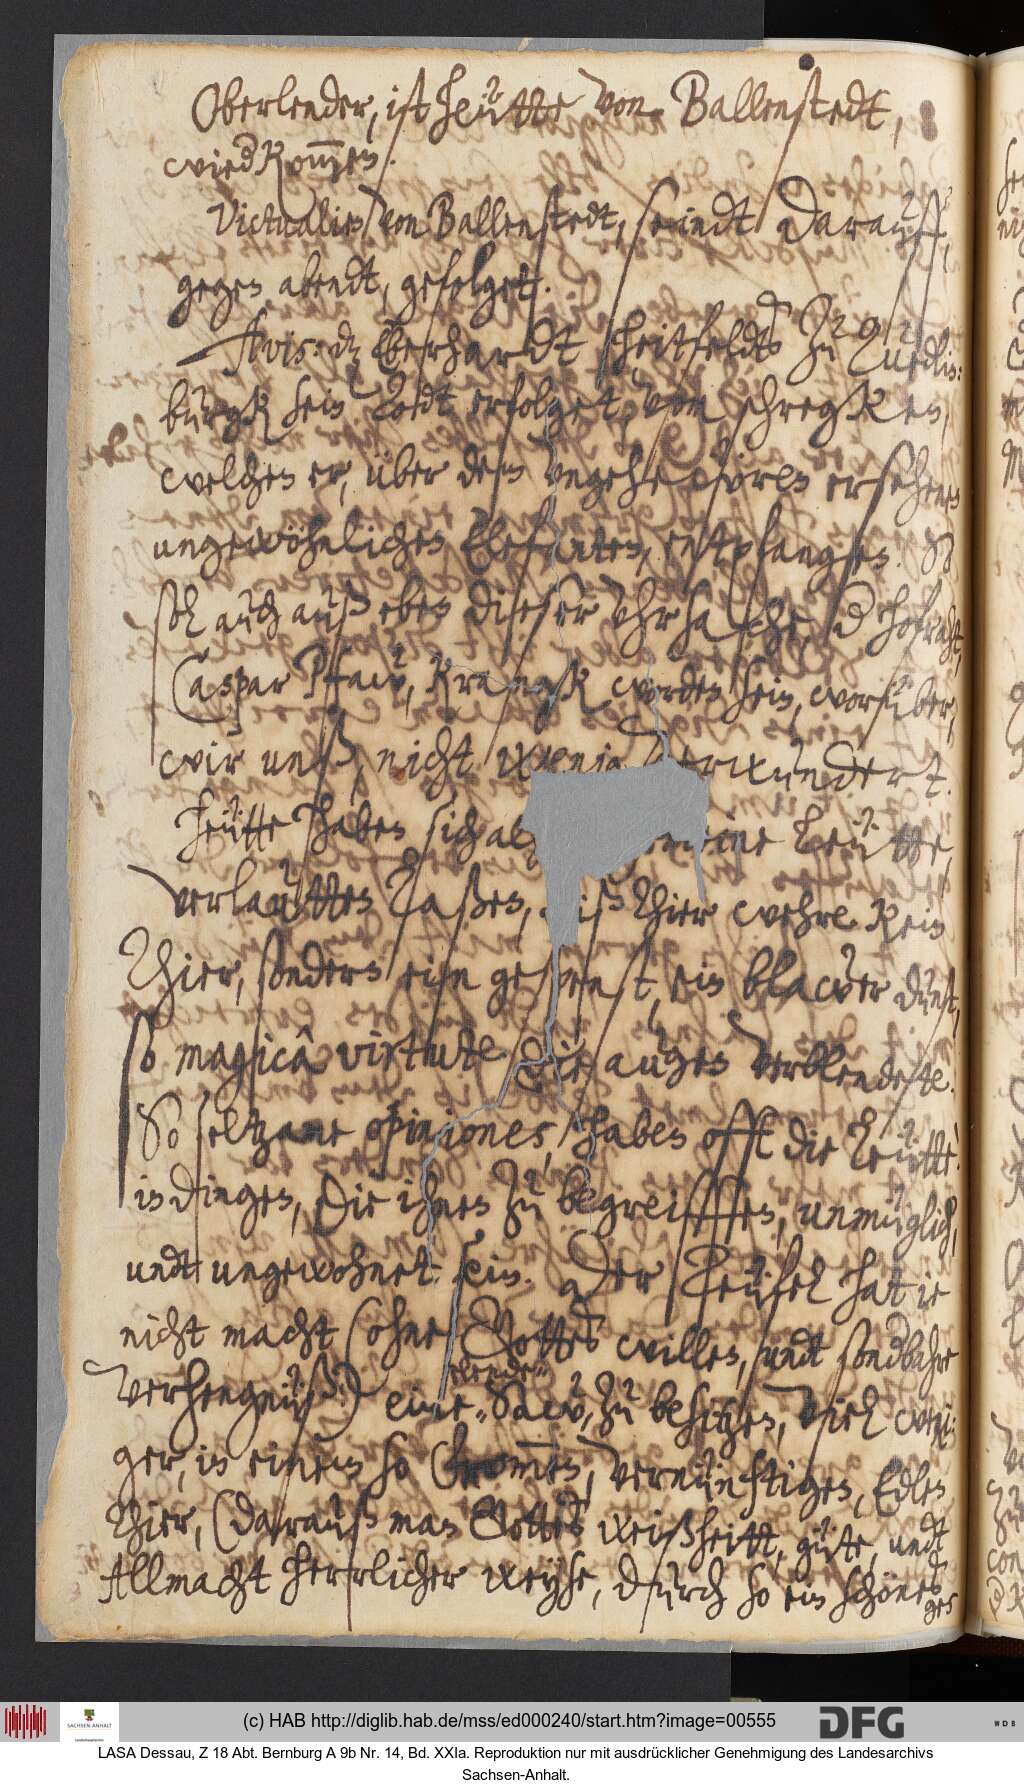 Oberlender, ist heütte von Ballenstedt,
wied[er] kom̅en.
Victualien von Ballenstedt, seindt darauff,
gegen abendt, gefolget.
Avis: dz Eberhardt Scheitfeldts zu Quedlin:
burgk sein Todt erfolget, von schregken,
welchen er, über dem ungeheuren ersehenen
ungewöhnlichen Elefanten, entpfangen. Es
soll auch auß eben dieser Uhrsache, d[er] hofraht,
Caspar Pfaw, krangk worden sein, worüber,
wir unß, nicht wenig verwundert.
Heütte haben sich al eine Leütte,
verlautten laßen, diß Thier wehre kein
Thier, sondern ein gespenst, ein blawer dunst,
so magicâ virtute die augen verblendete.
So seltzame opiniones, haben offt die Leütte.
in dingen, die ihnen zu begreiffen, unmüglich,
undt ungewohnet sein. Der Teüfel hat ie
nicht macht (ohne Gottes willen, undt sond[er]bahre
verhengnüß) eine elende Saw, zu besitzen, viel weni:
ger, in einem so from̅en, vernünftigen, Edlen
Thier, (darauß man Gottes weißheitt, güte, undt
Allmacht herrlicher weyse, durch so ein schönes
ges
(c) HAB http://diglib.hab.de/mss/ed000240/start.htm?image=00555
SACHSEN-ANHALT
DFG
WDB
LASA Dessau, Z 18 Abt. Bernburg A 9b Nr. 14, Bd. XXIa. Reproduktion nur mit ausdrücklicher Genehmigung des Landesarchivs
Sachsen-Anhalt.